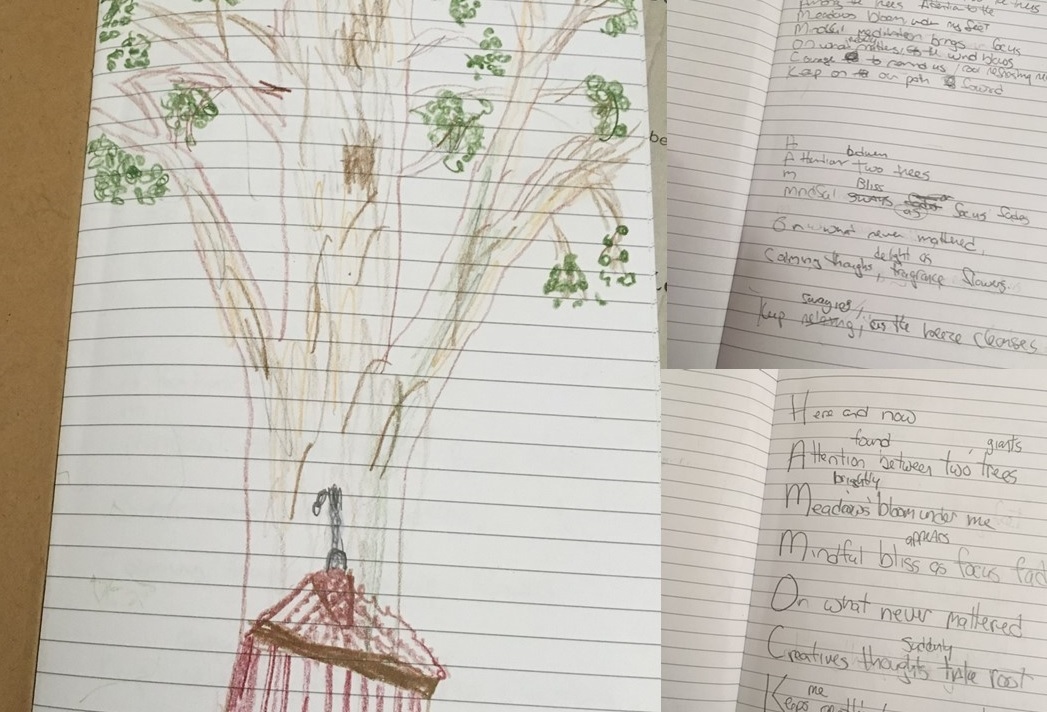 be
Meadows bloom under my feet
Mindful meditation brings focus
On what matters, the wind blows
Courage to remind us
Keep on on path forward
H
between
Attention two trees
m
Bliss
mindful sways as focus fades
On what never mattered,
delight as
Calming thoughts, fragrance flowers.
Swayes,
Keep relaxing, as the breeze cleanses
Here and now
found giants
Attention between two trees
brightly
Meadows bloom under me
appears
Mindful bliss as focus fad
On what never mattered
Suddenly
Creatives thoughts take root
me
Keeps